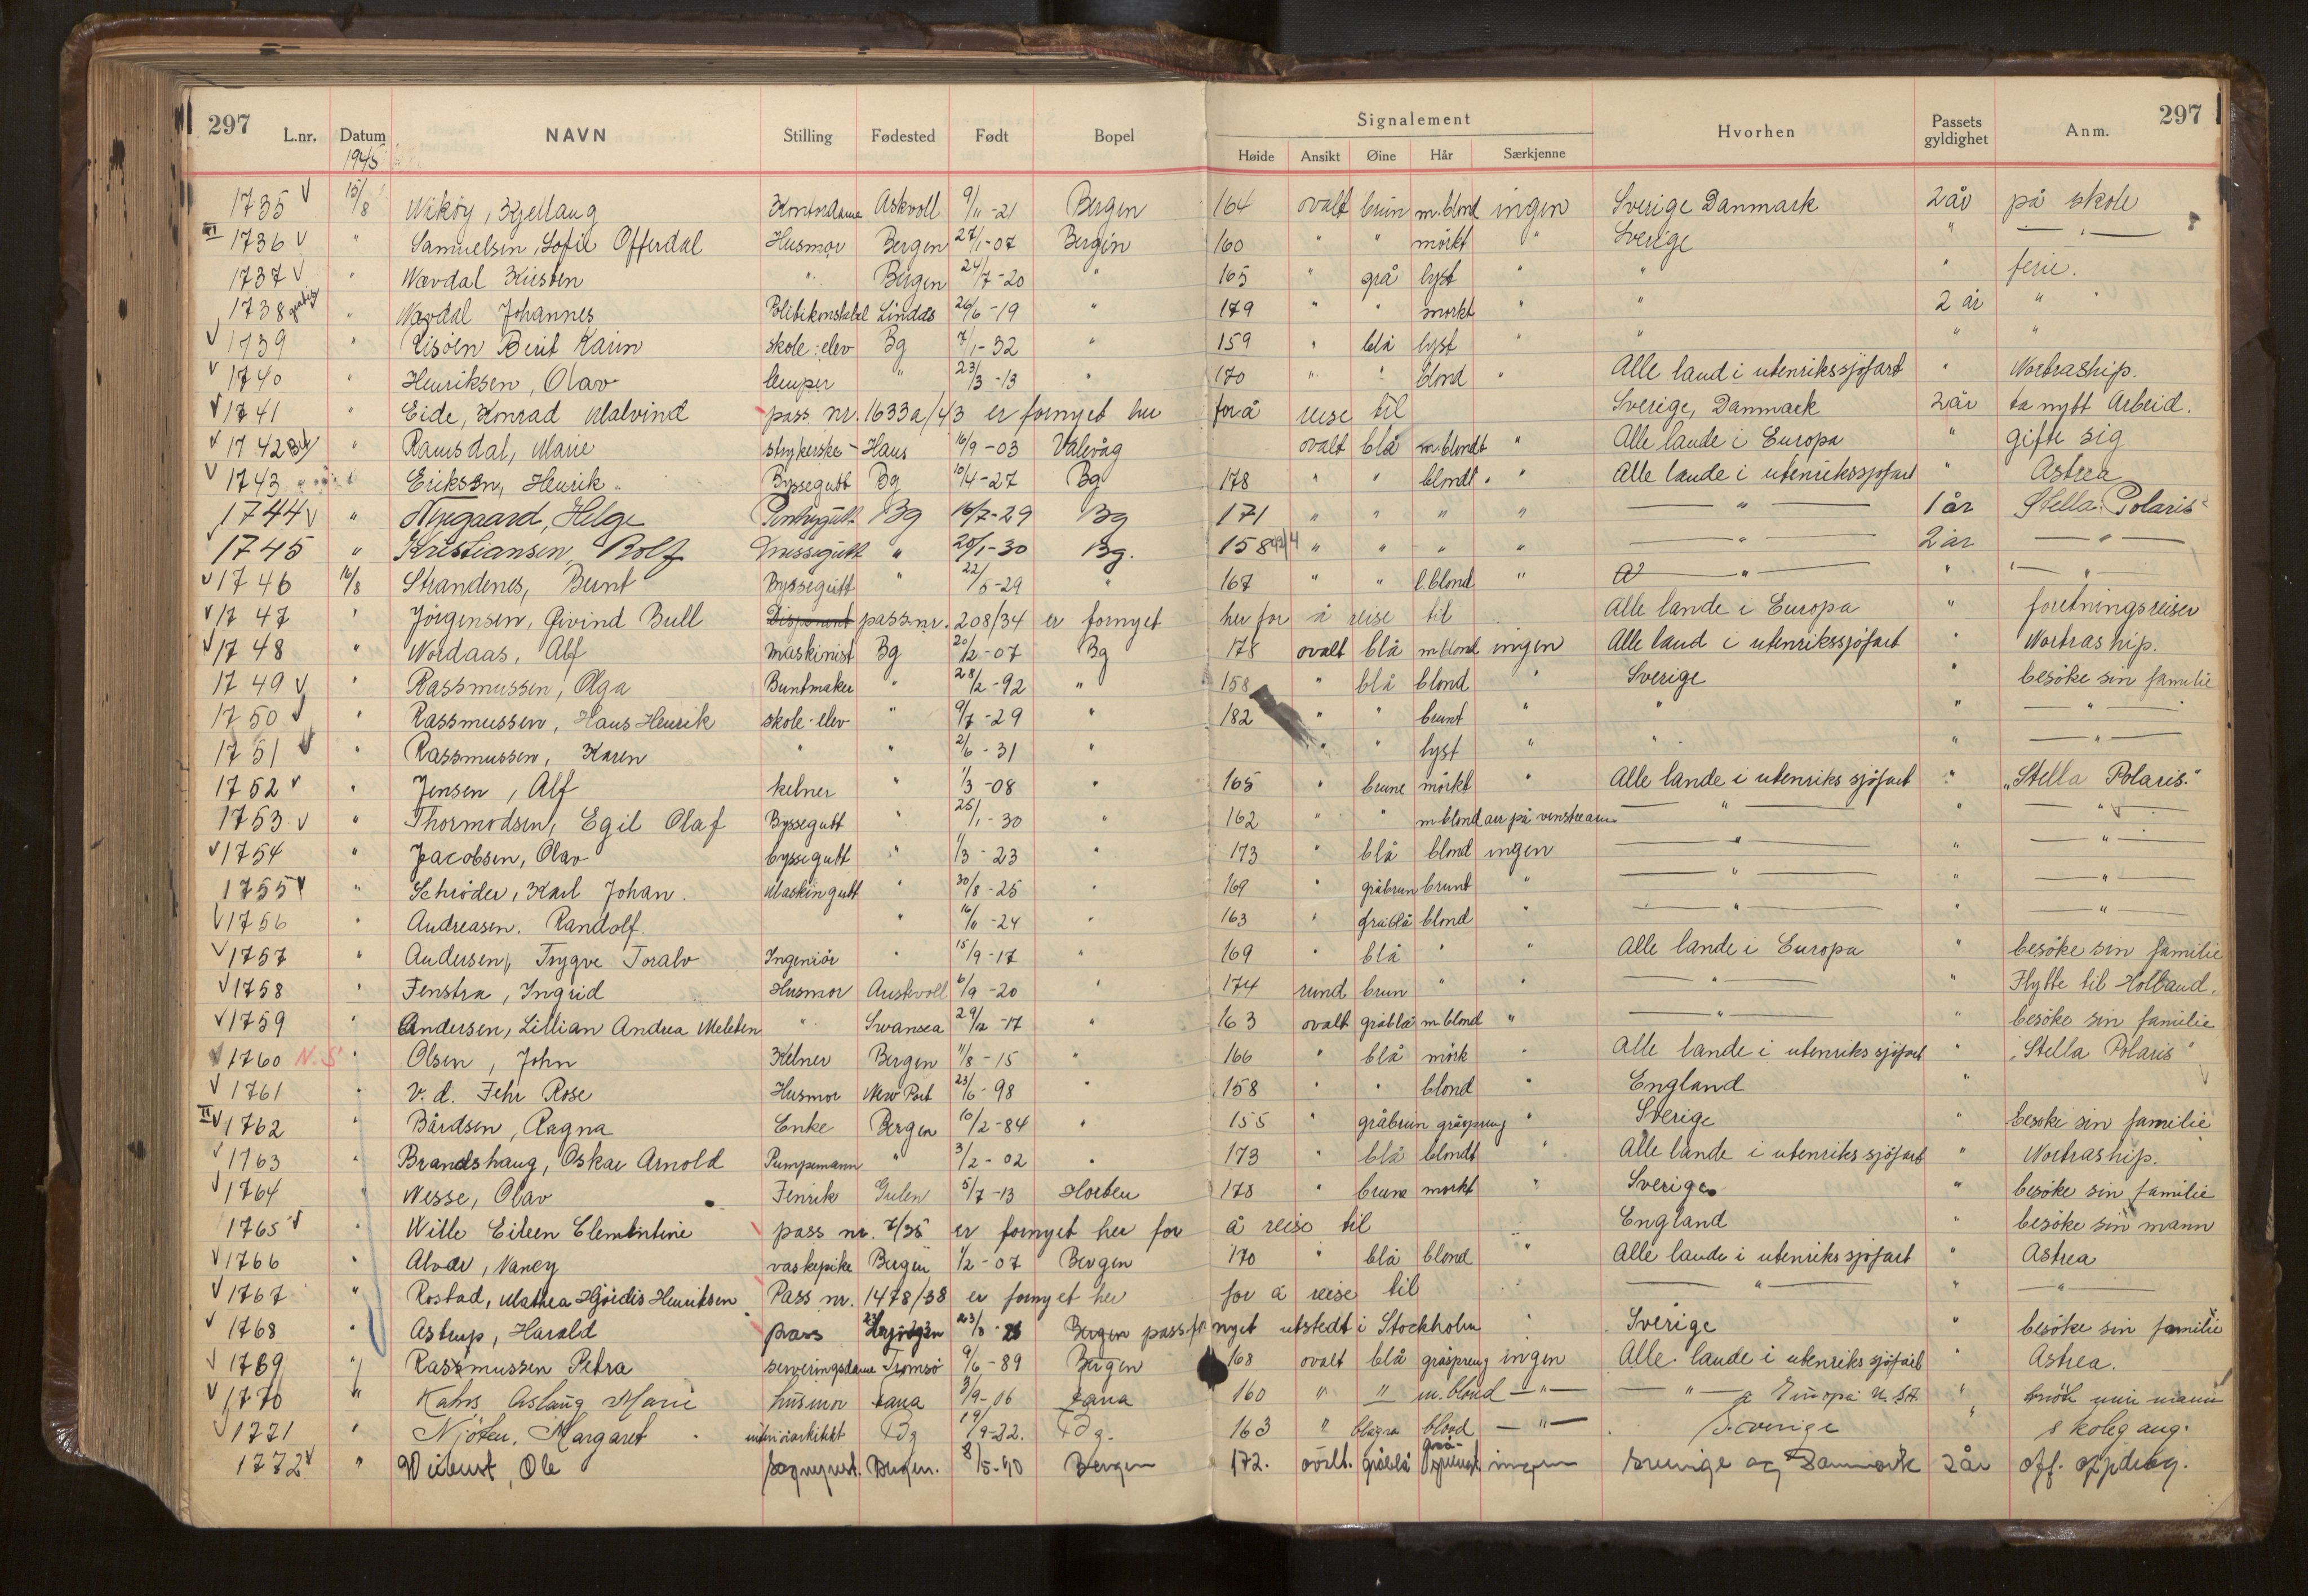 297 L.nr. Datum NAVN Stilling Fødested Født Bopel Signalement Hvorhen Passets gyldighet Anm. 297
1945 Høide Ansikt Øine Hår Særkjenne
1735 V 15/8 Wikøy, Kjellaug Kontordame Askvoll 9/11-21 Bergen 164 ovalt brun m.blond ingen Sverige Danmark 2 år på skole
VI 1736 V " Samuelsen, Sofie Offerdal Husmor Bergen 27/1-07 Bergen 160 " " mörkt " Sverige " — " —
1737 V " Nævdal Kirsten " Bergen 24/7-20 " 165 " grå lyst " " " ferie.
1738 gratis " Nævdal Johannes Politikonstabel Lindås 26/6-19 " 179 " " mörkt " " 2 år "
V 1739 " Risöen Berit Karin skole-elev Bg 7/1-32 " 159 " blå lyst " " " "
V 1740 " Henriksen, Olav lemper " 23/3-13 " 170 " " blond " Alle land i utenrikssjöfart " Nortraship.
V 1741 " Eide, Konrad Malvind pass nr. 1633a/43 er fornyet her for å reise til Sverige, Danmark 2 år ta nytt Arbeid.
V 1742 " Ramsdal, Marie strykerske Haus 16/9-03 Valevåg ovalt blå m.blondt " Alle lande i Europa " gifte sig
V 1743 " Eriksen, Henrik Byssegutt Bg 10/4-27 Bg 178 " " blondt " Alle lande i utenrikssjöfart " Astrea
1744 V " Nygaard, Helge Pentrygutt Bg 16/7-29 Bg 171 " " " " — " — 1 år "Stella Polaris"
1745 " Kristiansen, Rolf Messegutt " 20/1-30 Bg. 158 " " " " — " — 2 år — " —
V 1746 16/8 Strandenes, Bernt Byssegutt " 22/5-29 " 167 " " l.blond " — " — " — " —
V 1747 " Jörgensen, Öivind Bull pass nr. 208/34 er fornyet her for å reise til Alle lande i Europa " forretningsreiser
V 1748 " Nordaas, Alf maskinist Bg 20/2-07 Bg 178 ovalt blå m.blond ingen Alle land i utenrikssjöfart " Nortraship.
1749 V " Rassmussen, Olga Buntmaker " 28/2-92 " 158 " blå blond " Sverige " besöke sin familie
1750 V " Rassmussen, Hans Henrik skole-elev " 9/7-29 " 182 " " brunt " " " — " —
1751 V " Rassmussen, Karen " " 2/6-31 " " " lyst " " " — " —
1752 V " Jensen, Alf kelner " 1/3-08 " 165 " brune mörkt " Alle lande i utenriks sjöfart " "Stella Polaris."
1753 V " Thormodsen, Egil Olaf Byssegutt " 25/1-30 " 162 " " m.blond arr på venstre arm — " — " — " —
V 1754 " Jacobsen, Olav byssegutt " 1/3-23 " 173 " blå blond ingen — " — " — " —
1755 V " Schröder, Karl Johan. Maskingutt " 30/8-25 " 169 " gråbrun brunt " — " — " — " —
V 1756 " Andreasen, Randolf. " 16/6-24 " 163 " gråblå blond " — " — " — " —
V 1757 " Andersen, Trygve Toralv Ingeniör " 15/9-17 " 169 " blå " " Alle lande i Europa " besöke sin familie
V 1758 " Fenstra, Ingrid Husmor Auskvoll 6/9-20 " 174 rund brun " " — " — " Flytte til Holland.
V 1759 " Andersen, Lillian Andrea Meleten " Swansea 29/12-17 " 163 ovalt gråblå m.blond " — " — " besöke sin familie
V 1760 N.S " Olsen, John Kelner Bergen 11/8-15 " 166 " blå mörk " Alle lande i utenriks sjöfart " "Stella Polaris"
V 1761 " v. d. Fehr Rose Husmor New Port 23/6-98 " 158 " " blond " England "
II V 1762 " Bårdsen, Ragna Enke Bergen 10/2-84 " 155 " gråbrun gråspreng " Sverige " besöke sin familie
V 1763 " Brandshaug, Oskar Arnold Pumpemann " 3/2-02 " 173 " blå blondt " Alle lande i utenriks sjöfart " Nortraship.
V 1764 " Nesse, Olav Fenrik Gulen 5/7-13 Horten 178 " brune mörkt " Sverige " besöke sin familie
1765 V " Wille Eileen Clementine pass nr. 7/35 er fornyet her for å reise til England " besöke sin mann
V 1766 " Alver, Nancy vaskepike Bergen 1/2-07 Bergen 170 " blå blond " Alle lande i utenriks sjöfart " Astrea
V 1767 " Rostad, Mathea Hjördis Henriksen Pass nr. 1478/38 er fornyet her for å reise til — " — " — " —
V 1768 " Astrup, Harald pass 23/8 Bergen pass fornyet utstedt i Stockholm Sverige " besöke sin familie
V 1769 " Rassmussen Petra serveringsdame Tromsö 9/6-89 Bergen 168 ovalt blå gråspreng ingen Alle lande i utenriks sjöfart " Astrea.
V 1770 " Kahrs Aslaug Marie husmor Fana 3/9-06 Fana 160 " " m.blond — " — — " — Europa U.S.A. " mann
V 1771 " Njöten, Margaret interiörarkitekt Bg 19/9-22. Bg. 163 " blågrå blond — " — Sverige " skoleg ang.
1772 V " Ole Bergen. 8/5-90 Bergen 172. ovalt. gråblå gråsprengt ingen Sverige og Danmark 2 år off. oppdrag.